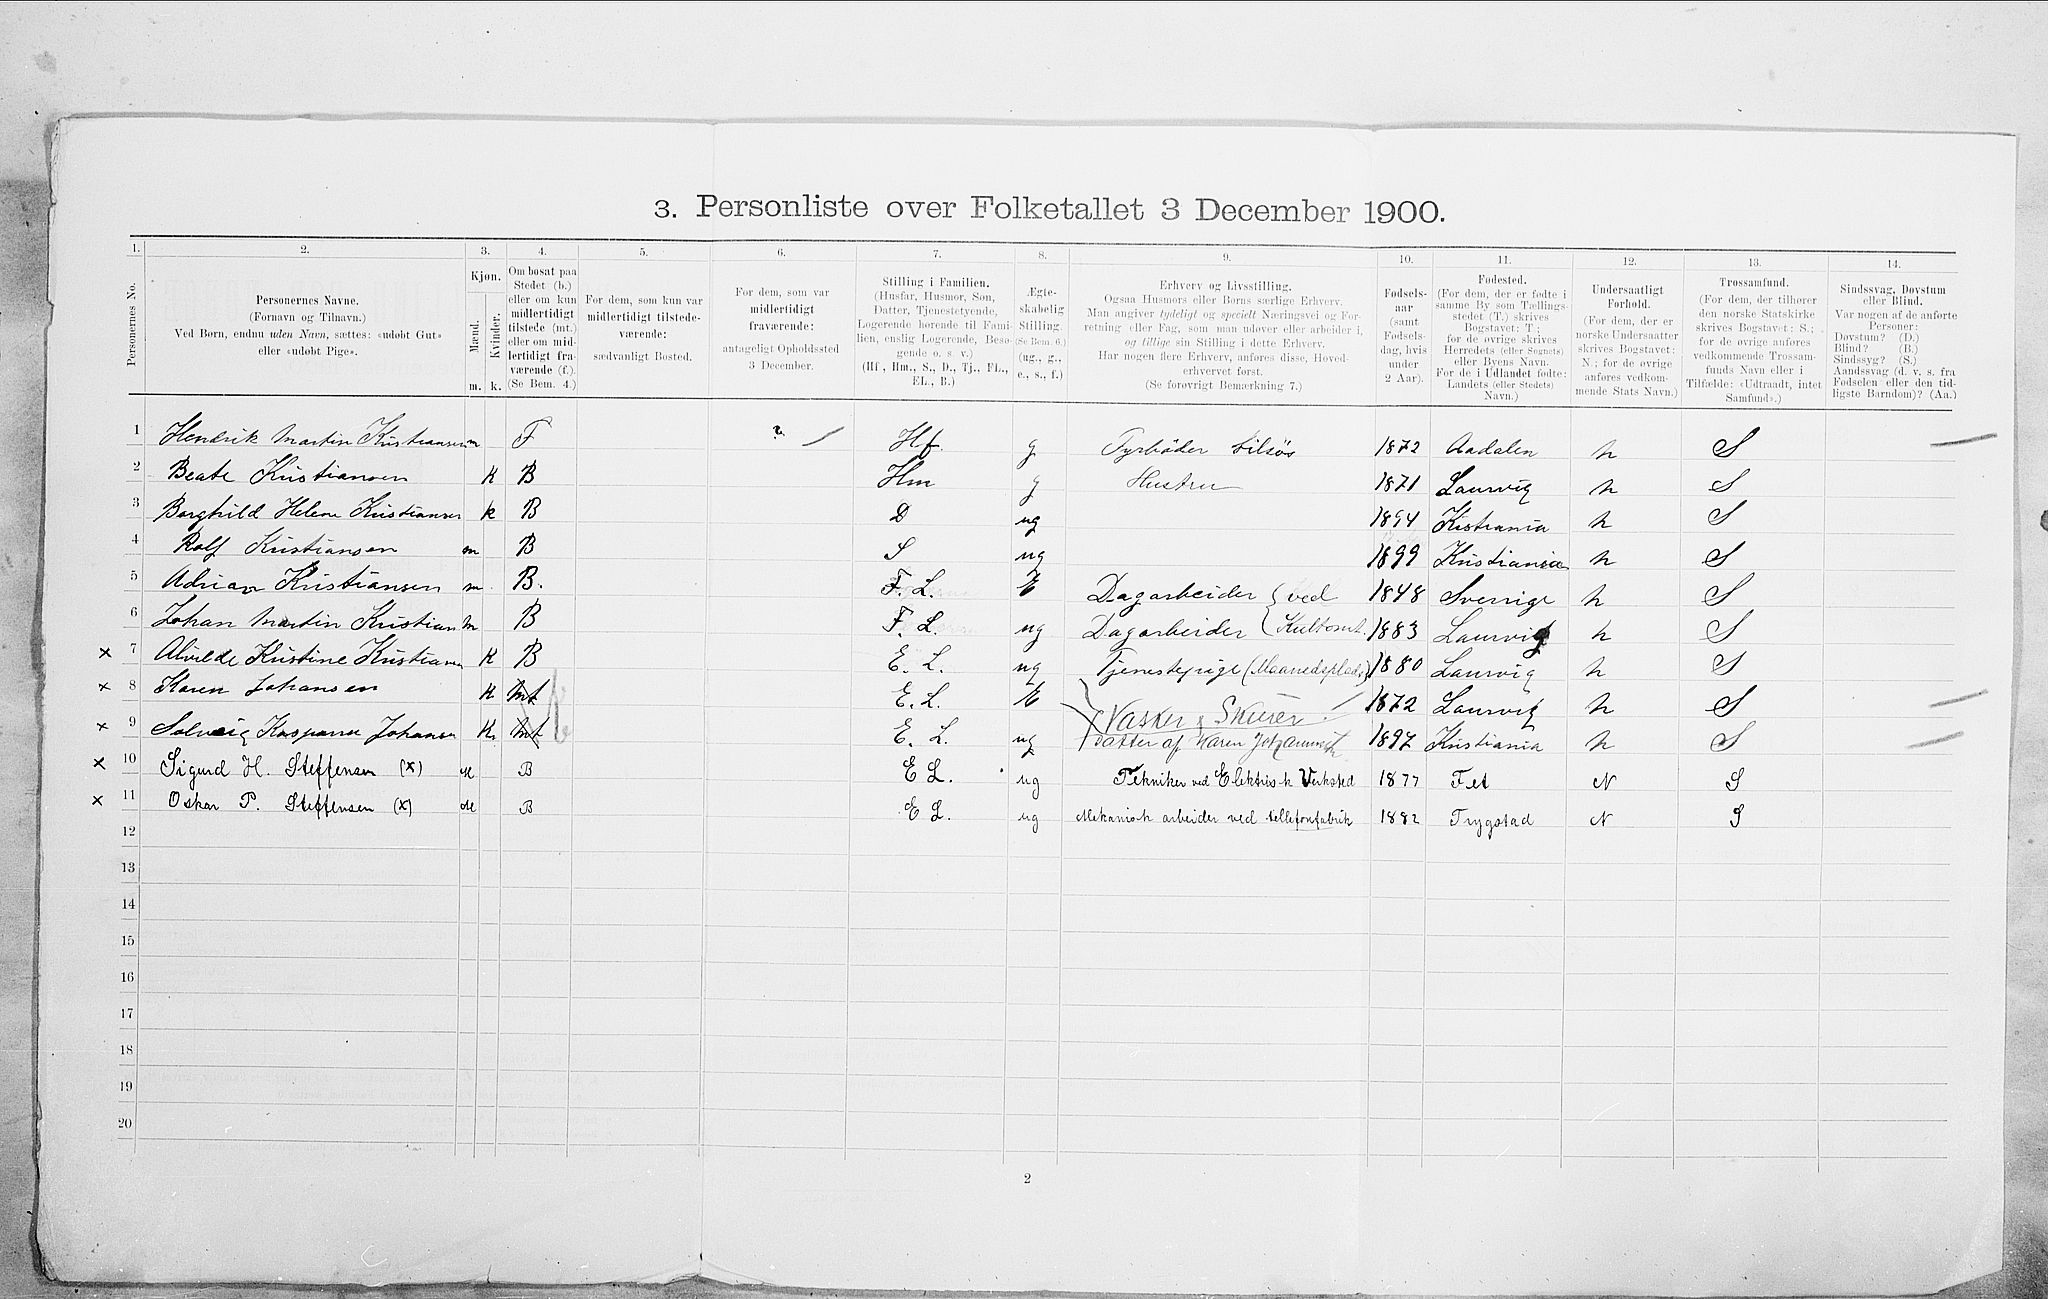 3. Personliste over Folketallet 3 December 1900.
1. 2. 3. 4. 5. 6. 7. 8. 9. 10. 11. 12. 13. 14.
Personernes No.
Personernes Navne.
(Fornavn og Tilnavn.)
Ved Børn, endnu uden Navn, sættes: «udøbt Gut»
eller «udøbt Pige».
Kjøn.
Mænd.
Kvinder.
m. k.
Om bosat paa
Stedet (b.)
eller om kun
midlertidigt
tilstede (mt.)
eller om mid-
lertidigt fra-
værende (f.).
(Se Bem. 4.)
For dem, som kun var
midlertidigt tilstede-
værende:
sædvanligt Bosted.
For dem, som var
midlertidigt
fraværende:
antageligt Opholdssted
3 December.
Stilling i Familien.
(Husfar, Husmor, Søn,
Datter, Tjenestetyende,
Logerende hørende til Fami-
lien, enslig Logerende, Besø-
gende o. s. v.)
(Hf, Hm., S., D., Tj., FL.,
EL., B.)
Ægte-
skabelig
Stilling.
(Se Bem. 6.)
(ug., g.,
e., s., f.)
Erhverv og Livsstilling.
Ogsaa Husmors eller Børns særlige Erhverv.
Man angiver tydeligt og specielt Næringsvei og For-
retning eller Fag, som man udøver eller arbeider i,
og tillige sin Stilling i dette Erhverv.
Har nogen flere Erhverv, anføres disse, Hoved-
erhvervet først.
(Se forøvrigt Bemærkning 7.)
Fødsels-
aar
(samt
Fødsels-
dag, hvis
under
2 Aar).
Fødested.
(For dem, der er fødte i
samme By som Tællings-
stedet (T.) skrives
Bogstavet: T.;
for de øvrige skrives
Herredets (eller Sognets)
eller Byens Navn.
For de i Udlandet fødte:
Landets (eller Stedets)
Navn.)
Undersaatligt
Forhold.
(For dem, der er
norske Undersaatter
skrives Bogstavet:
N.; for de øvrige
anføres vedkom-
mende Stats Navn.)
Trossamfund.
(For dem, der tilhører
den norske Statskirke
skrives Bogstavet: S.;
for de øvrige anføres
vedkommende Trossam-
funds Navn eller i
Tilfælde: «Udtraadt, intet
Samfund».)
Sindssvag, Døvstum
eller Blind.
Var nogen af de anførte
Personer:
Døvstum? (D.)
Blind? (B.)
Sindssyg? (S.)
Aandssvag (d. v. s. fra
Fødselen eller den tid-
ligste Barndom)? (Aa.)
1 Hendrik Martin Kristiansen m F ? Hf. g Fyrbøder tilsøs 1872 Aadalen N S
2 Beate Kristiansen K B Hm g Hustru 1871 Laurvig N S
3 Borghild Helene Kristiansen k B D ug 1894 Kristiania N S
4 Rolf Kristiansen m B S ug 1899 Kristiania N S
5 Adrian Kristiansen m B. F. L. E Dagarbeider { ved 1848 Sverrige N S
6 Johan Martin Kristian m B F. L. ug Dagarbeider { Kultomt. 1883 Laurvig N S
× 7 Alvilde Kristine Kristiansen K B E. L. ug Tjenestepige (Maanedsplads) 1880 Laurvig N S
× 8 Karen Johansen K mt E. L. E Vasker & Skurer 1872 Laurvig N S
× 9 Solveig Kaspara Johansen K. mt E. L. ug Datter af Karen Johannesen 1897 Kristiania N S
× 10 Sigurd H. Steffensen (X) M B E L. ug Tekniker ved Elektrisk Verksted 1877 Fet N S
× 11 Oskar P. Steffensen (X) M B E L. ug Mekanisk arbeider ved tellefonfabrik 1882 Trygstad N S
12
13
14
15
16
17
18
19
20
2